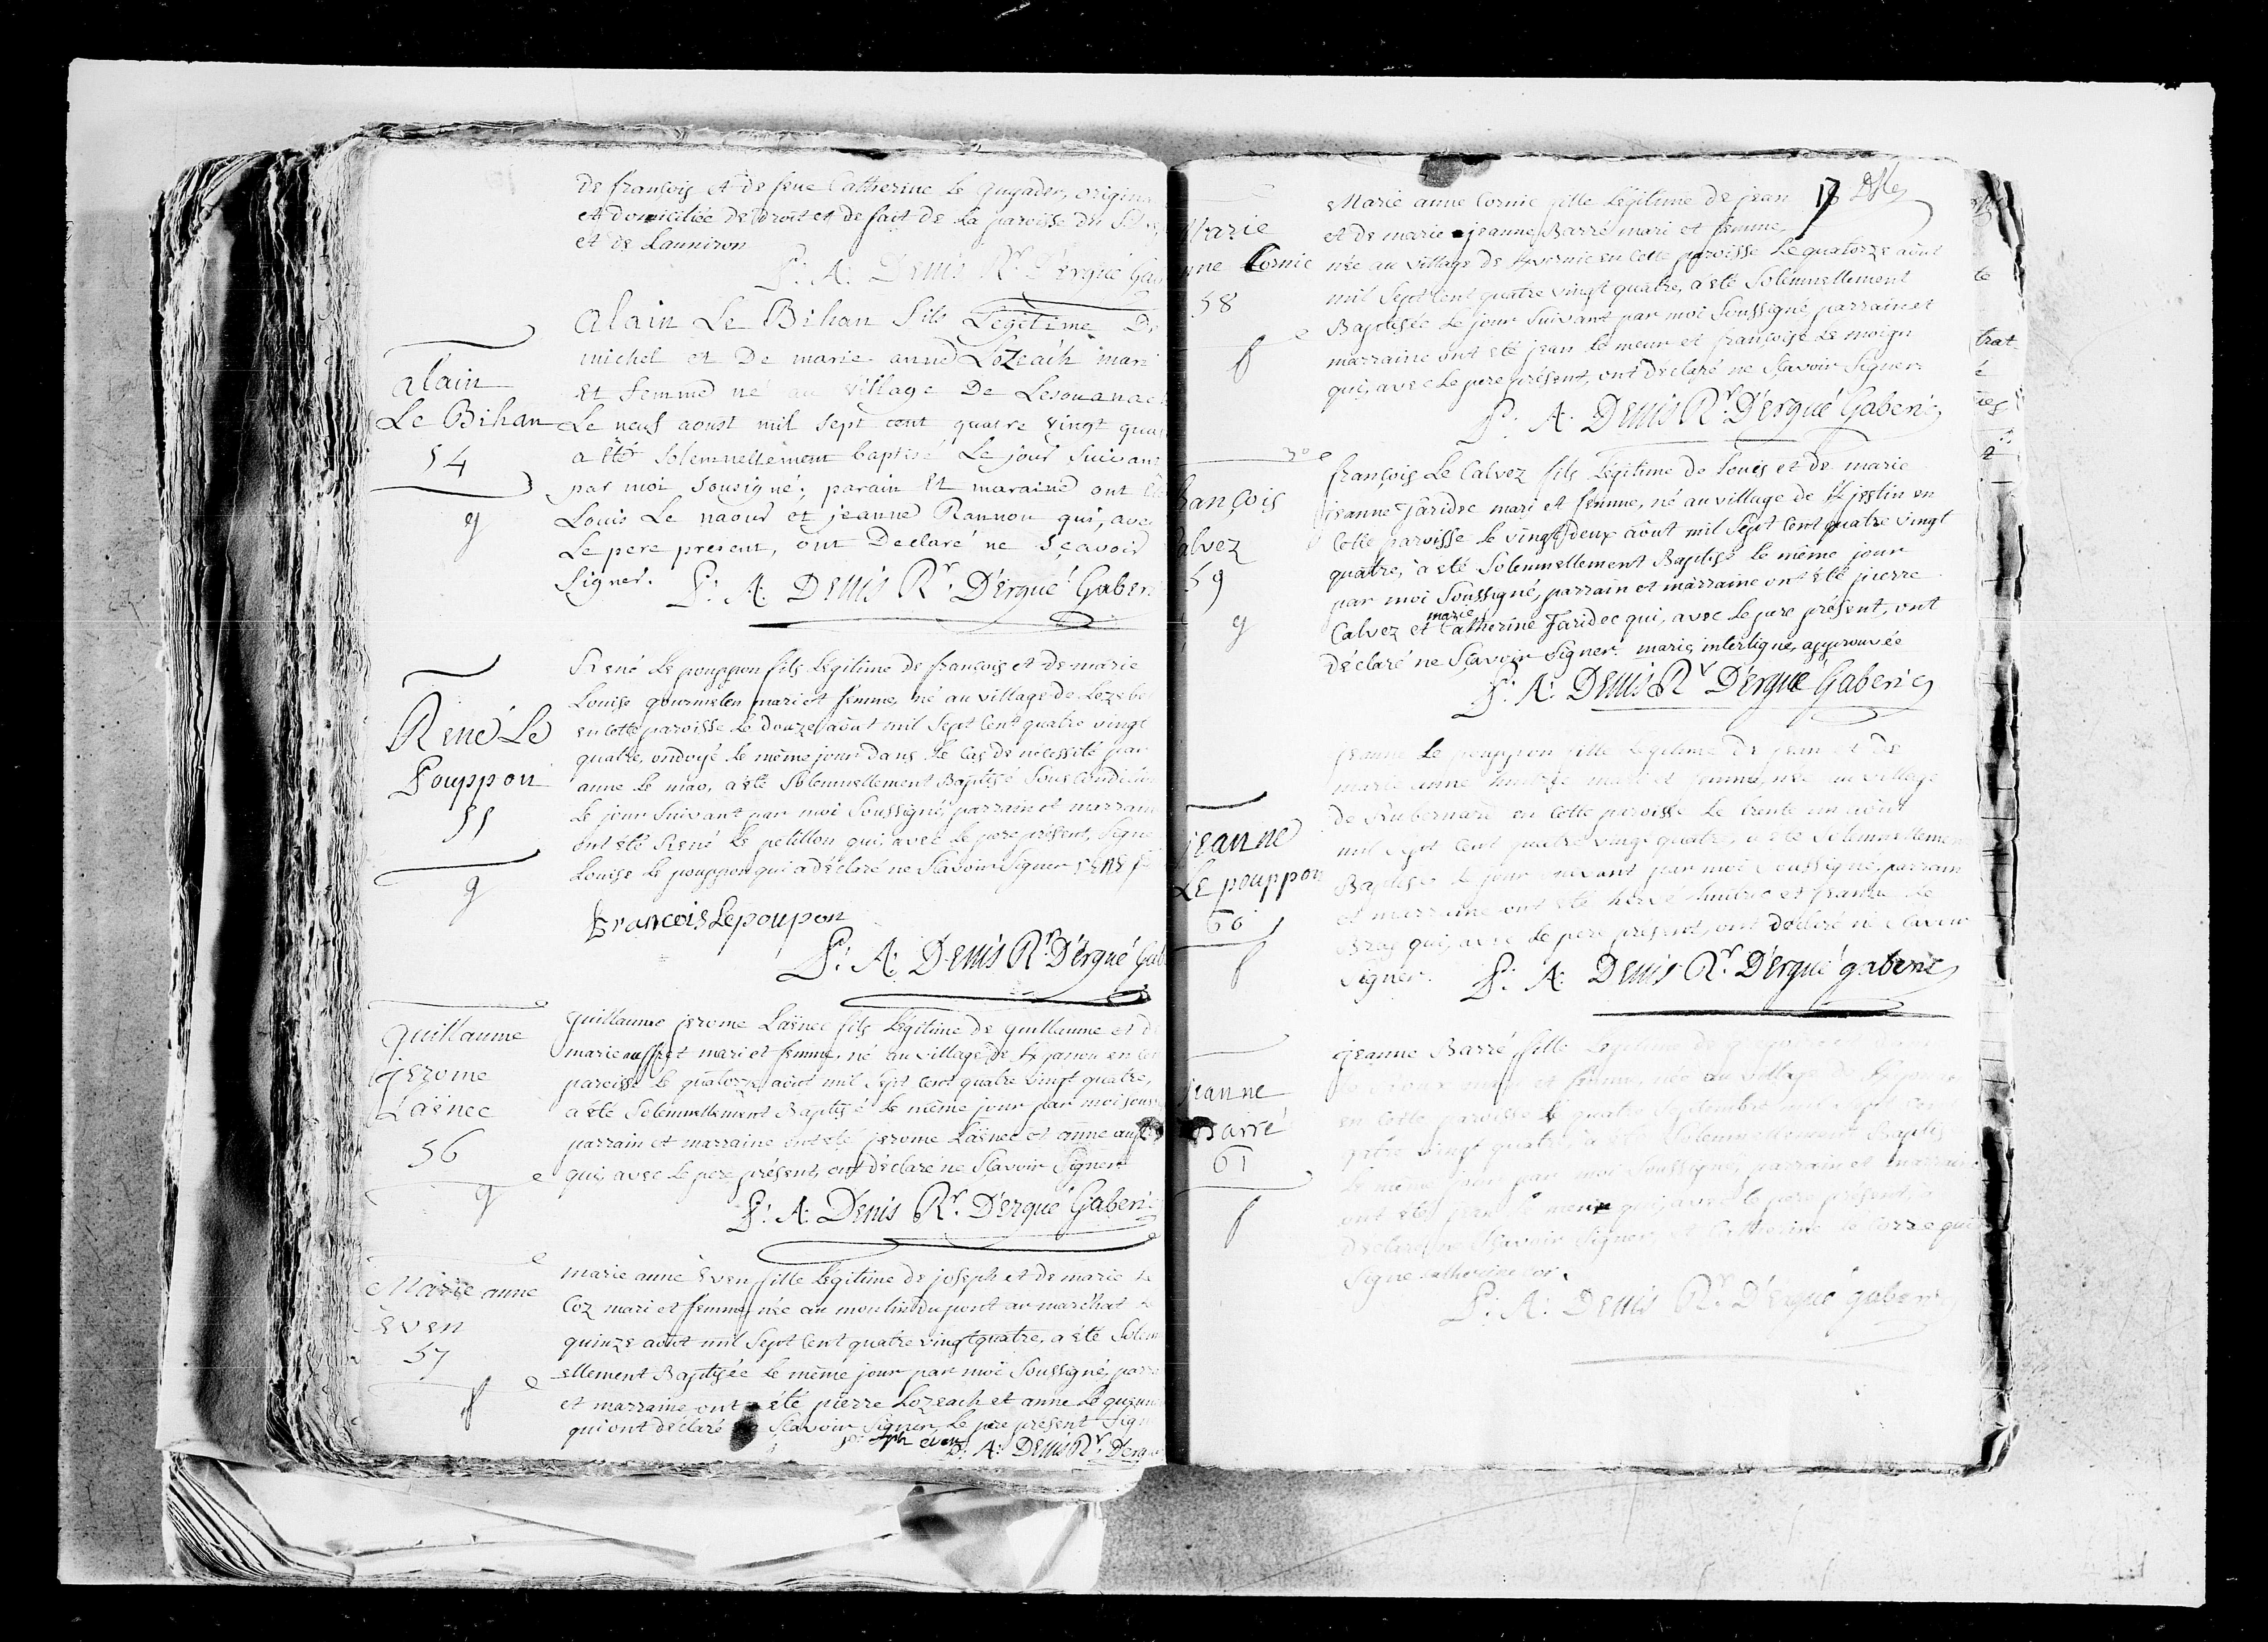 de françois et de feue Catherine Le guyader, origin
et domiciliée de droit et de fait de la paroisse du
et de Lanniron
P: A: Denis Rr. D'ergué Gab
alain
Le Bihan
54
g
alain Le Bihan fils Legitime De
michel et De marie anne Lozeach mari
et femme né au village De Lesouanac
Le neuf aoust mil sept cent quatre vingt quat
a été solemnellement baptisé Le jour suivant
par moi sousigné; parain et maraine ont
Louis Le naour et jeanne Rannou qui, avec
Le pere present, ont Declaré ne sçavoir
signer. P: A: Denis Rr. D'ergué Gaberi
René Le
Pouppon
55
g
René Le pouppon fils Légitime de françois et de marie
Louise gourmelen mari et femme, né au village de Lezebe
en cette paroisse Le douze août mil Sept Cent quatre vingt
quatre, ondoyé Le même jour dans Le Cas de nécessité par
anne Le mao, a été Solemnellement Baptisé Sous Condition
Le jour Suivant par moi Soussigné, parrain et marraine
ont été René Le petillon qui, avec Le pere présent, Signe
Louise Le pouppon qui a déclaré ne Sçavoir Signer
francois Lepoupon
P: A: Denis Rr. D'érgué Gab
guillaume
jerome
Laënec
56
g
guillaume jerome Laënec fils Légitime de guillaume et d
marie auffret mari et femme, né au village de Kjanou en
paroisse Le quatorze août mil Sept Cent quatre vingt quatre,
a été Solemnellement Baptisé Le même jour par moi sous
parrain et marraine ont été jerome Laënec et anne auf
qui, avec Le pere présent, ont déclaré ne Sçavoir Signer
P: A: Denis Rr. D'ergué Gaberi
Marie anne
Even
57
f
marie anne Even fille Légitime de joseph et de marie Le
Coz mari et femme, née au moulin du pont ar marchat Le
quinze août mil Sept Cent quatre vingt quatre, a été Solem
ellement Baptisée Le même jour par moi Soussigné, parr
et marraine ont été pierre Lozeach et anne Le
qui ont déclaré Sçavoir Signer, Le pere présent Sign
even
P: A: Denis Rr. D'ergu
17
Marie
nne Cornic
58
f
Marie anne Cornic fille Légitime de jean
et de marie jeanne Barré mari et femme,
née au village de en Cette paroisse Le quatorze août
mil Sept Cent quatre vingt quatre, a été Solemnellement
Baptisée Le jour Suivant par moi Soussigné, parrain et
marraine ont été jean Le meur et françoise Le moign
qui, avec Le pere présent, ont déclaré ne Sçavoir Signer.
P: A: Denis Rr. D'Ergué Gaberic
rançois
alvez
59
g
françois Le Calvez fils Légitime de Louis et de marie
jeanne Jaridec mari et femme, né au village de Kjestin en
Cette paroisse Le vingt deux août mil Sept Cent quatre vingt
quatre, a été Solemnellement Baptisé Le même jour
par moi Soussigné, parrain et marraine ont été pierre
marie
Calvez et Catherine Jaridec qui, avec Le pere présent, ont
déclaré ne Sçavoir Signer. marie, interligne, approuvée
P: A: Denis Rr D'ergué Gaberic
jeanne
Le pouppon
60
f
jeanne Le pouppon fille Légitime de jean et de
marie anne mari et femme, née au village
de Kubernard en Cette paroisse Le trente un août
mil Sept Cent quatre vingt quatre, a été Solemnellemen
Baptisée Le jour suivant par moi Soussigné, parrain
et marraine ont été hervé et jeanne Le
Bras qui, avec Le pere présent, ont déclaré ne Sçavoir
Signer. P: A: Denis Rr. D'Ergué gaberic
jeanne
Barré
61
f
jeanne Barré fille Légitime de
et femme, née au village de
en Cette paroisse Le quatre Septembre mil Sept Cent
qatre vingt quatre a été Solemnellement Baptis
Le même jour par moi Soussigné, parrain et marraine
ont été jean Le meur qui, avec Le pere présent, a
déclaré ne Sçavoir Signer et Catherine Le Corre qui
Signe Catherine Cor
P: A: Denis Rr. D'Ergué gaberic